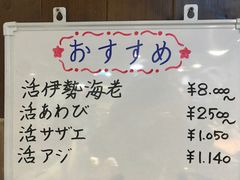 おすすめ
活伊勢海老 ¥8.000~
活あわび ¥2500~
活サザエ ¥1.050
活アジ ¥1.140